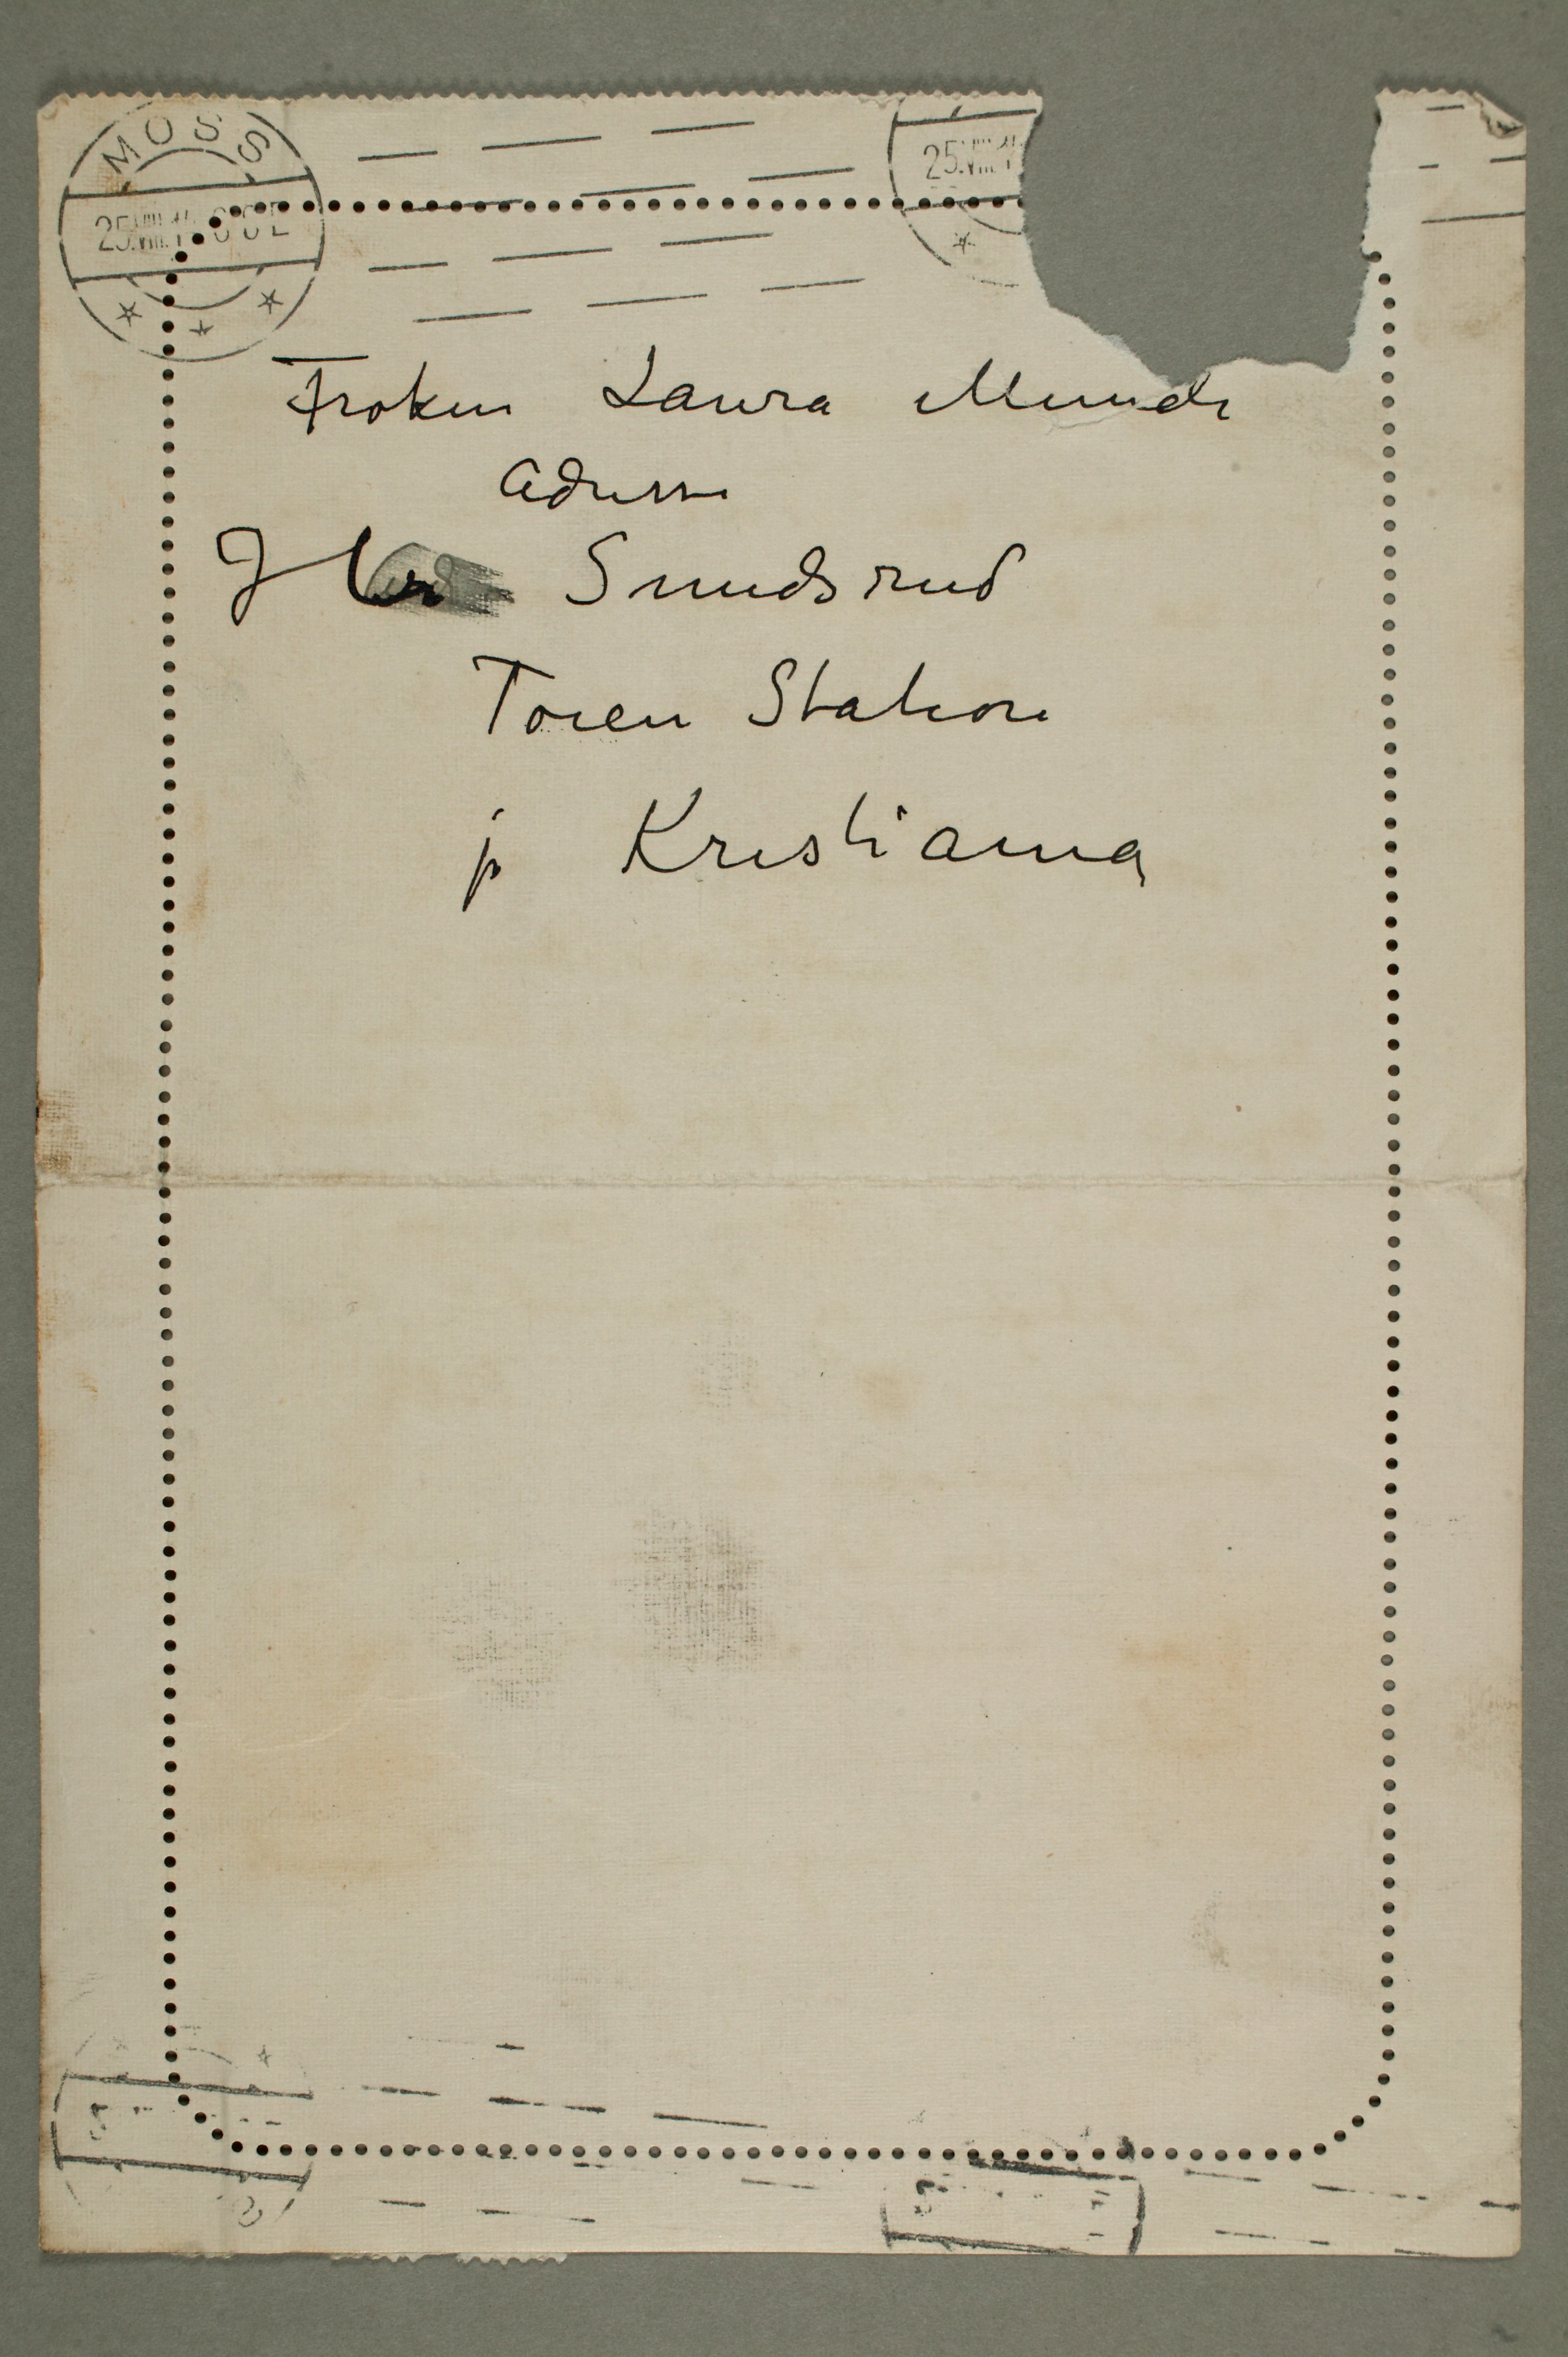 MOSS
25.VIII.1
25.VIII.1
Frøken Laura Munch
Adresse
Sundsrud
Toien Station
p Kristiania